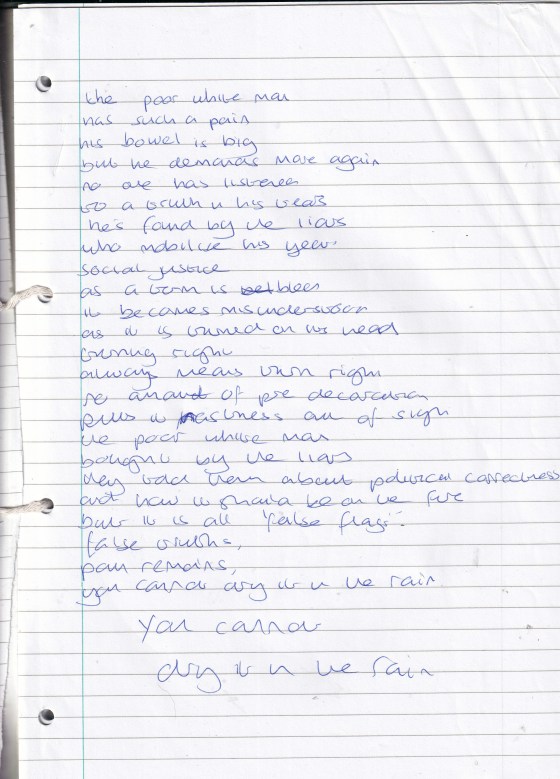 the poor white man
has such a pain
his bowel is big
but he demands more again
no one has listened
to a truth in his tears
he's found by the liars
who mobilise his years
social justice
as a term is bled
it becomes misunderstood
as it is turned on its head
turning right
always means turn right
no amount of pre decoration
pulls it nastiness out of sight
the poor white man
bought by the liars
they told them about political correctness
and how it should be on the fire
but it is all 'false flags'.
false truths,
pain remains,
you cannot dry it in the rain
You cannot
dry it in the rain